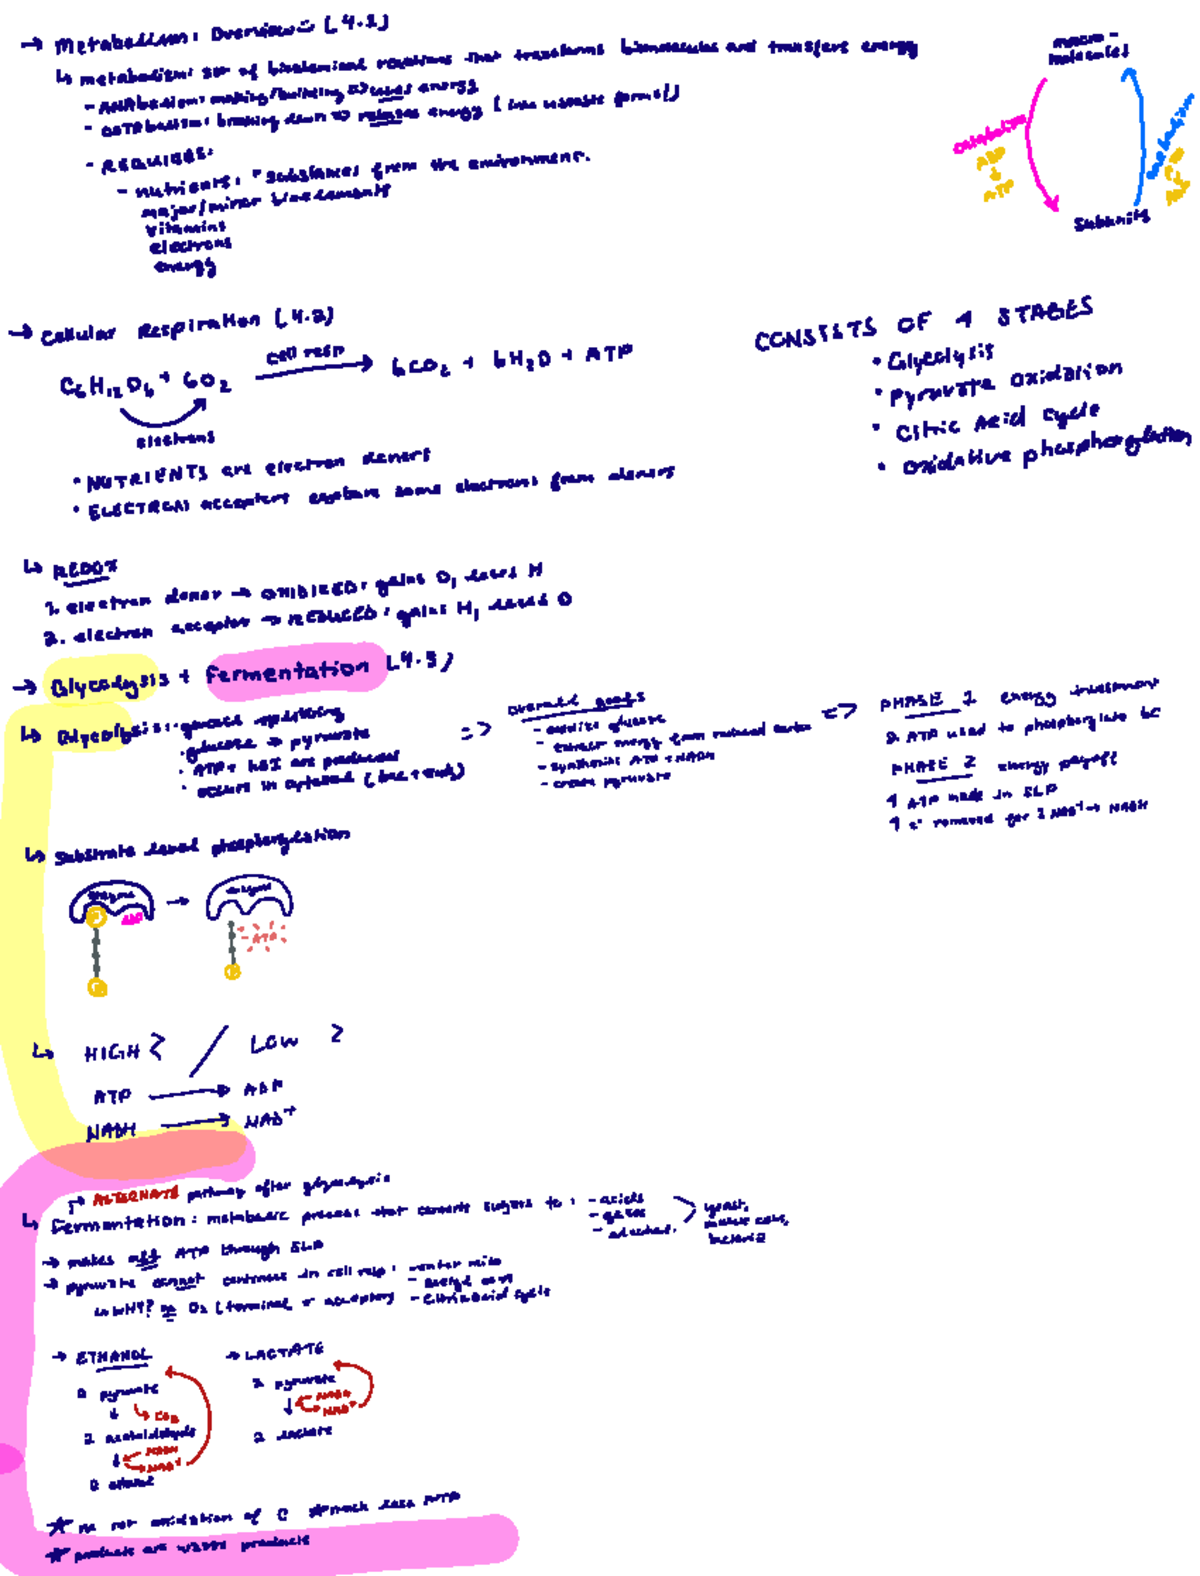 → Metabolism: Overview [4.1]
↳ metabolism: sum of biochemical reactions that transforms biomolecules and transfers energy
- ANAbolism: making/building => uses energy
- CATAbolism: breaking down => releases energy (into useable forms!)
- REQUIRES:
- nutrients: "substances from the environment.
major/minor bioelements
vitamins
electrons
energy
macro-
molecules
catabolism
ADP
↓
ATP
Subunits
→ Cellular Respiration [4.2]
C6H12O6 + 6O2 cell resp → 6CO2 + 6H2O + ATP
electrons
• NUTRIENTS are electron donors
• ELECTRON acceptors capture some electrons from donors
CONSISTS OF 4 STAGES
• Glycolysis
• Pyruvate Oxidation
• Citric Acid Cycle
• Oxidative phosphorylation
↳ REDOX
1. electron donor → OXIDIZED: gains O, loses H
2. electron acceptor → REDUCED: gains H, loses O
→ Glycolysis + fermentation [4.3]
↳ Glycolysis: glucose splitting
• glucose → pyruvate
• ATP + are produced
• occurs in cytosol
=> overall goals
- oxidize glucose
- extract energy from reduced
- synthesize ATP + NADH
- create pyruvate
=> PHASE 1 energy investment
2 ATP used to phosphorylate 6C
PHASE 2 energy payoff
4 ATP made in SLP
4 e⁻ removed for 2 NAD⁺ → NADH
↳ Substrate level phosphorylation
enzyme
ADP
→
enzyme
ATP
↳ HIGH / LOW
ATP → ADP
NADH → NAD⁺
→ ALTERNATE pathway after glycolysis
↳ fermentation: metabolic process that converts sugars to: - acids
- gases
- alcohol
yeast,
muscle cells,
bacteria
→ makes ATP through SLP
→ pyruvate cannot continue in cell resp:
↳ WHY? no O2 (terminal e⁻ acceptor)
- citric acid cycle
→ ETHANOL
2 pyruvate
↓ CO2
2 acetaldehyde
↓ NADH
NAD⁺
2 ethanol
→ LACTATE
2 pyruvate
↓ NADH
NAD⁺
2 lactate
★ no oxidation of C ★ much less ATP
★ products are waste products